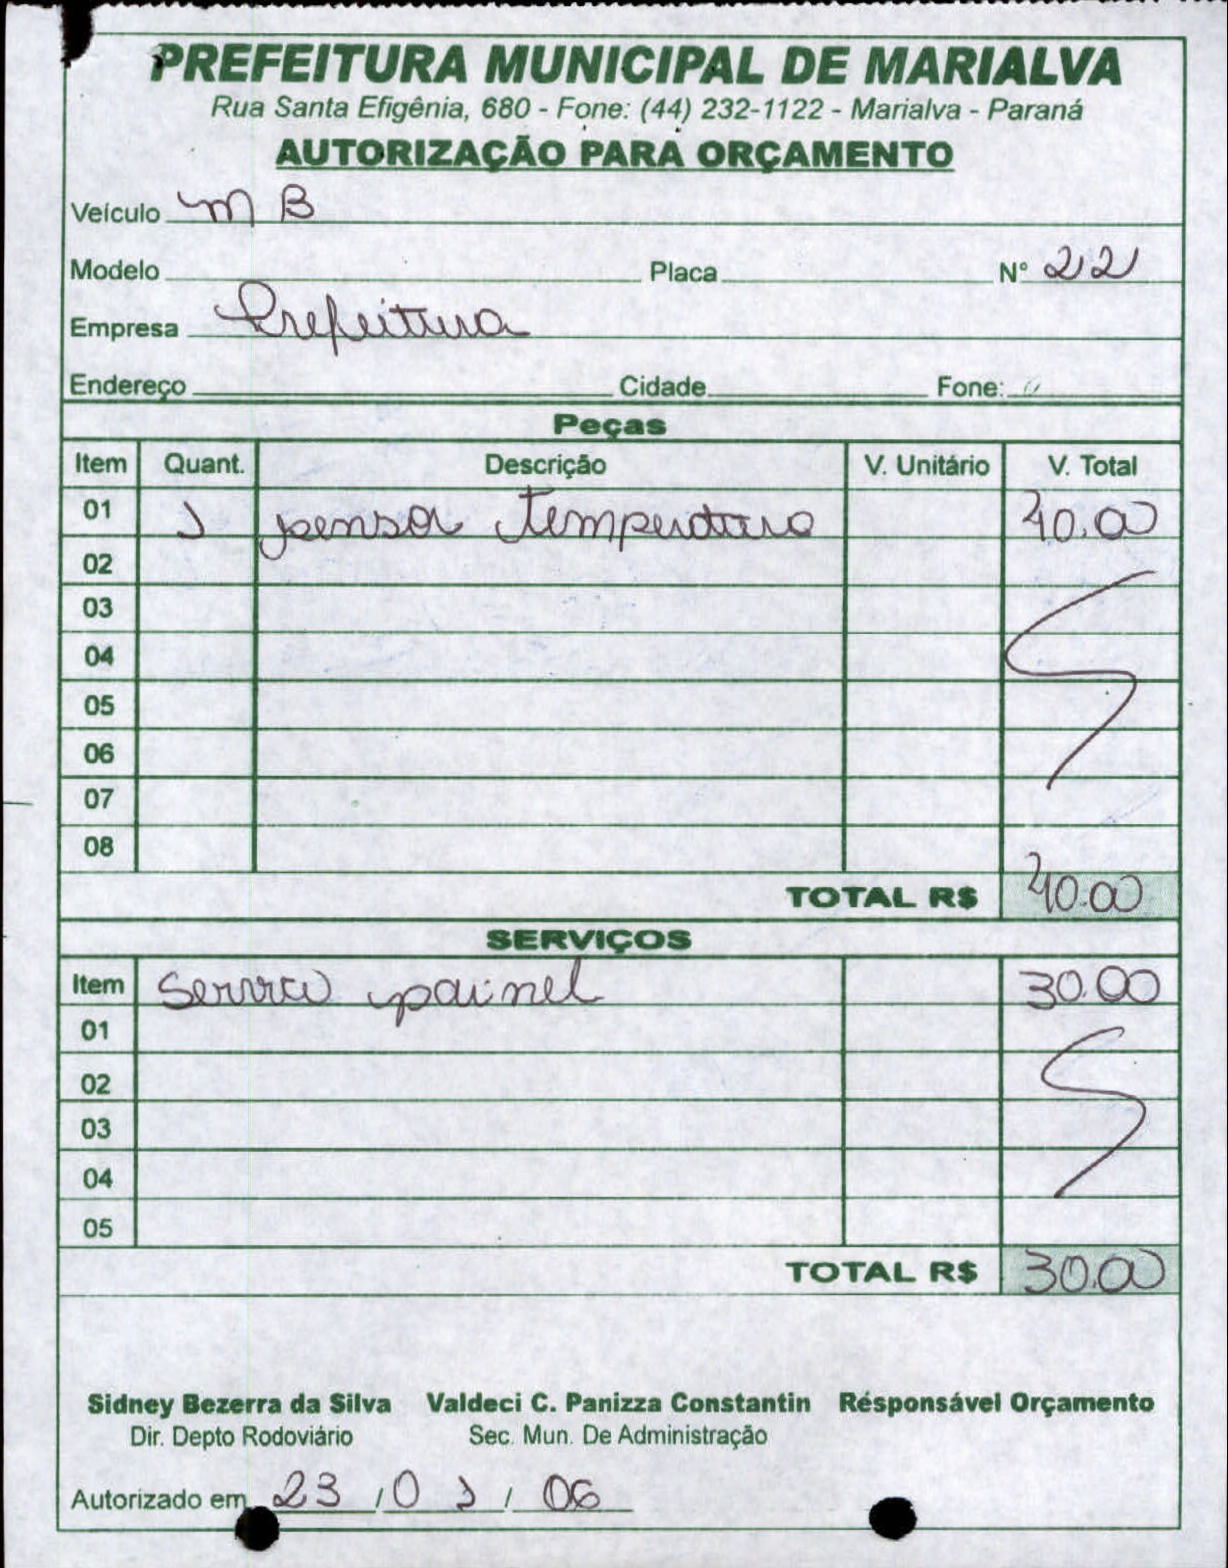 PREFEITURA MUNICIPAL DE MARIALVA
Rua Santa Efigênia, 680 - Fone: (44) 232-1122 - Marialva - Paraná
AUTORIZAÇÃO PARA ORÇAMENTO
Veículo M B
Modelo Placa N° 22
Empresa Prefeitura
Endereço Cidade Fone:
Peças
Item Quant. Descrição V. Unitário V. Total
01 1 sensor temperatura 40,00
02
03
04
05
06
07
08
TOTAL R$ 40.00
SERVIÇOS
Item Servico painel 30.00
01
02
03
04
05
TOTAL R$ 30.00
Sidney Bezerra da Silva Valdeci C. Panizza Constantin Résponsável Orçamento
Dir. Depto Rodoviário Sec. Mun. De Administração
Autorizado em 23 / 01 / 06